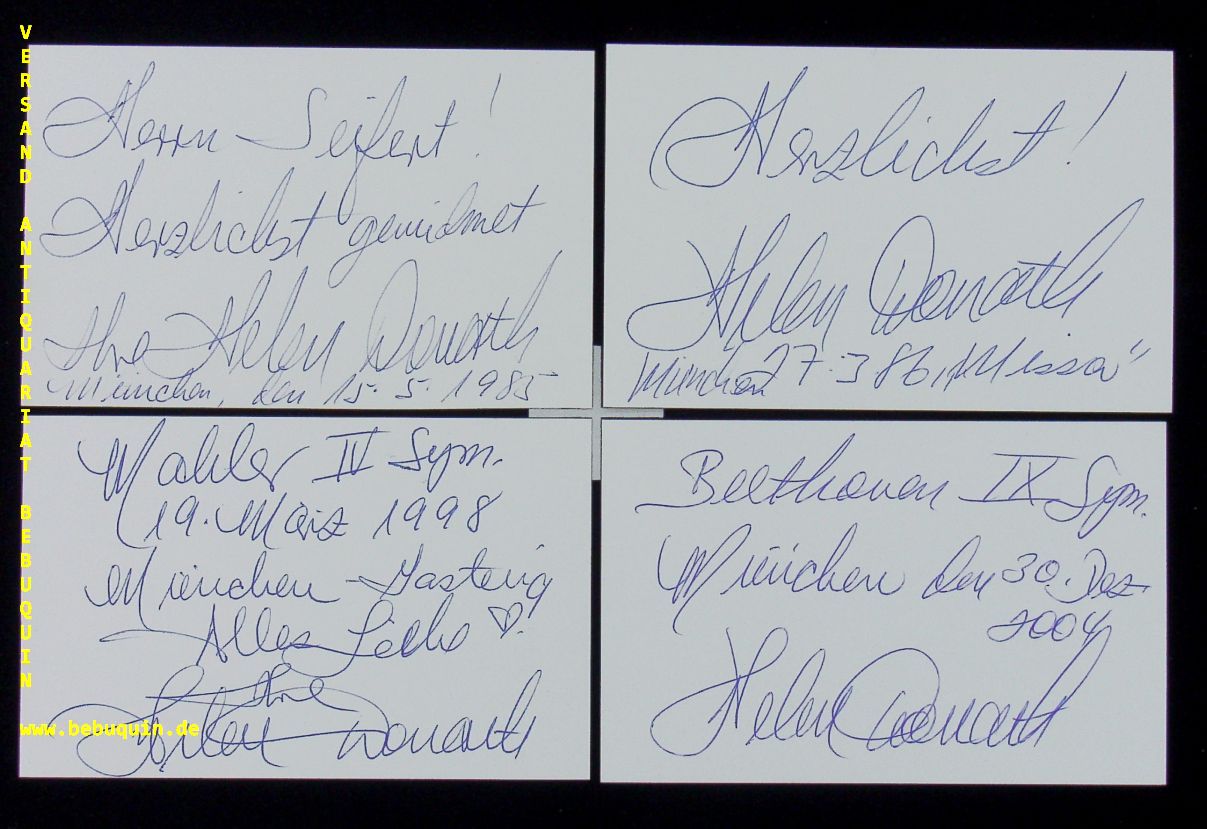 VERSAND ANTIQUARIAT BEBUQUIN
Herrn Seifert!
Herzlichst gewidmet
Ihre Helen Donath
München, den 15. 5. 1985
Herzlichst!
Helen Donath
München 27. 3 86 „Missa“
Mahler IV Sym.
19. März 1998
München - Gasteig
Alles Liebe ♡!
Ihre
Helen Donath
Beethoven IX Sym.
München den 30. Dez.
2004
Helen Donath
www.bebuquin.de